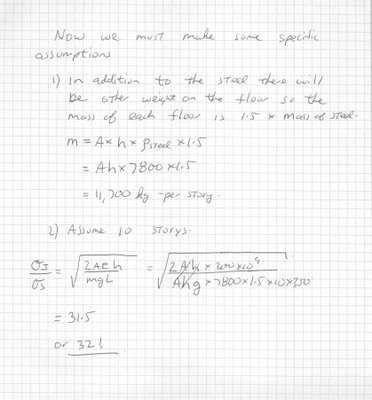 Now we must make some specific
assumptions
1) In addition to the steel there will
be other weight on the floor so the
mass of each floor is 1.5 × mass of steel.
m = A × h × ρsteel × 1.5
= Ah × 7800 × 1.5
= 11,700 kg - per story.
2) Assume 10 storys
σI/σS = √(2AEh/mgL) = √(2Ah × 200×10⁹/Ahg × 7800 × 1.5 × 10 × 350)
= 31.5
or 32!